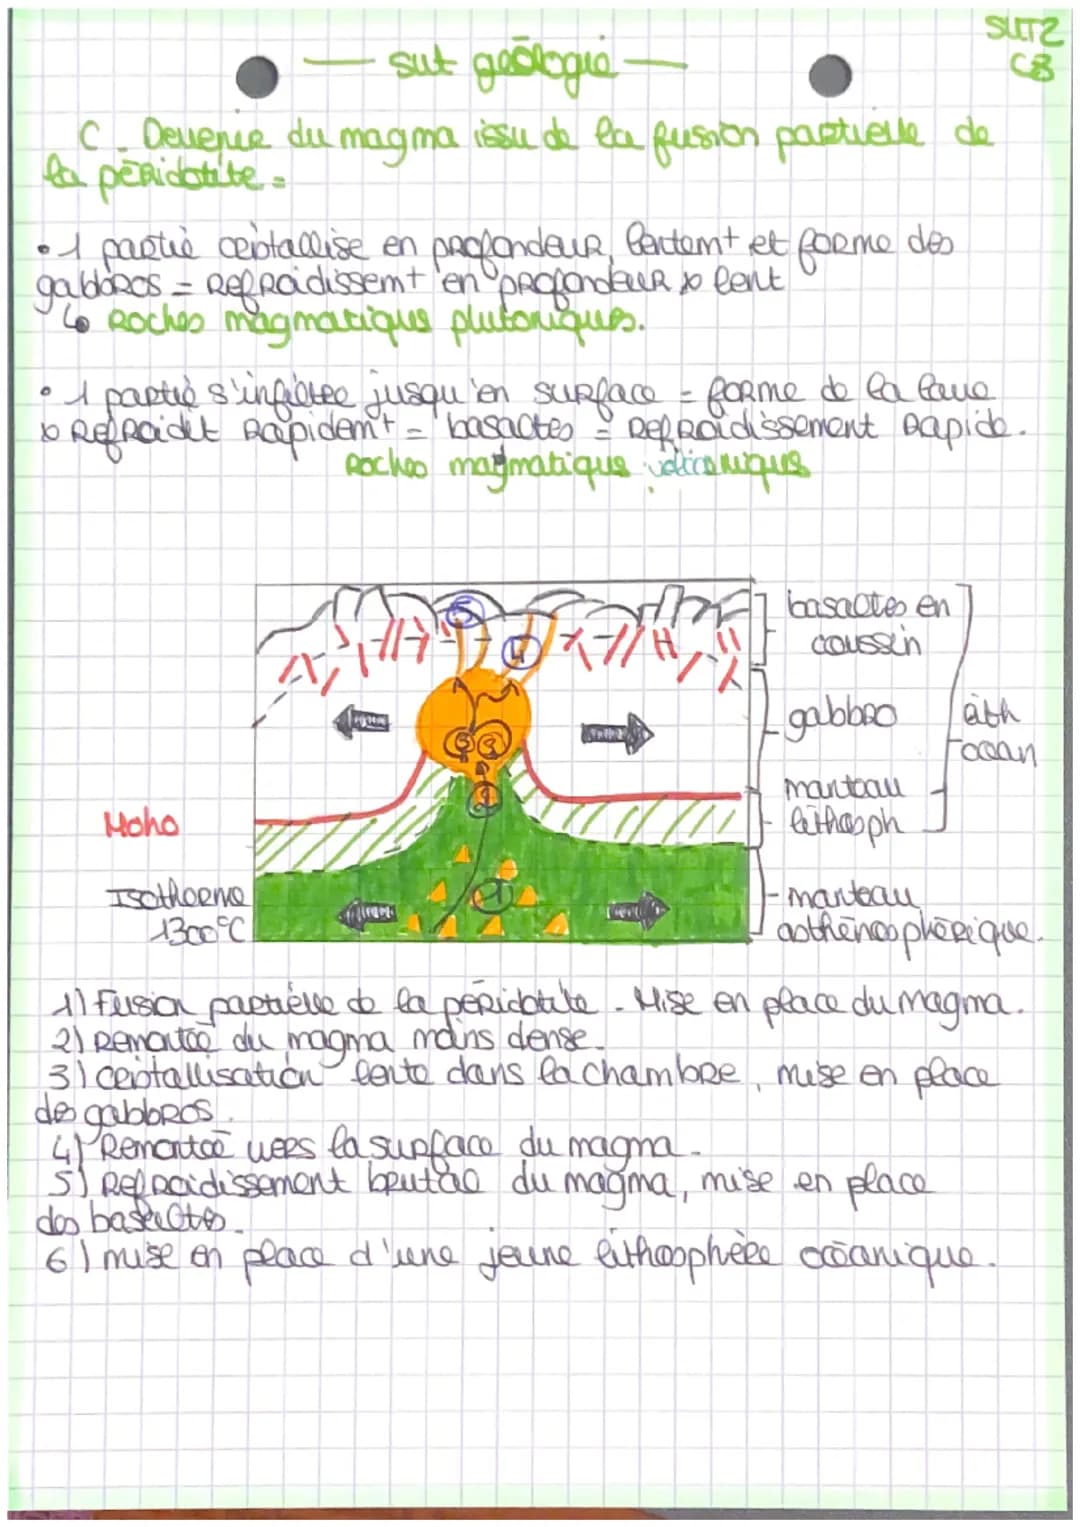 SVT2
C3
svt géologie
C. Devenir du magma issu de la fusion partielle de
la péridotite =
• 1 partie cristallise en profondeur, lentem+ et forme des
gabbros = Refroidissem+ en profondeur lent
↳ Roches magmatiques plutoniques.
• 1 partie s'infiltre jusqu'en surface = forme de la lave
Refroidit Rapidem+ = basaltes = Refroidissement Rapide.
Roches magmatiques volcaniques
basaltes en
coussin
5
4
gabbro
lith
ocean
3
3
2
manteau
lithosph
Moho
Isotherme
1300°C
1
manteau
asthénosphérique.
1) Fusion partielle de la péridotite - Mise en place du magma.
2) Remontée du magma moins dense.
3) Cristallisation lente dans la chambre, mise en place
des gabbros.
4) Remontée vers la surface du magma.
5) Refroidissement brutal du magma, mise en place
des basaltes.
6) mise en place d'une jeune lithosphère océanique.